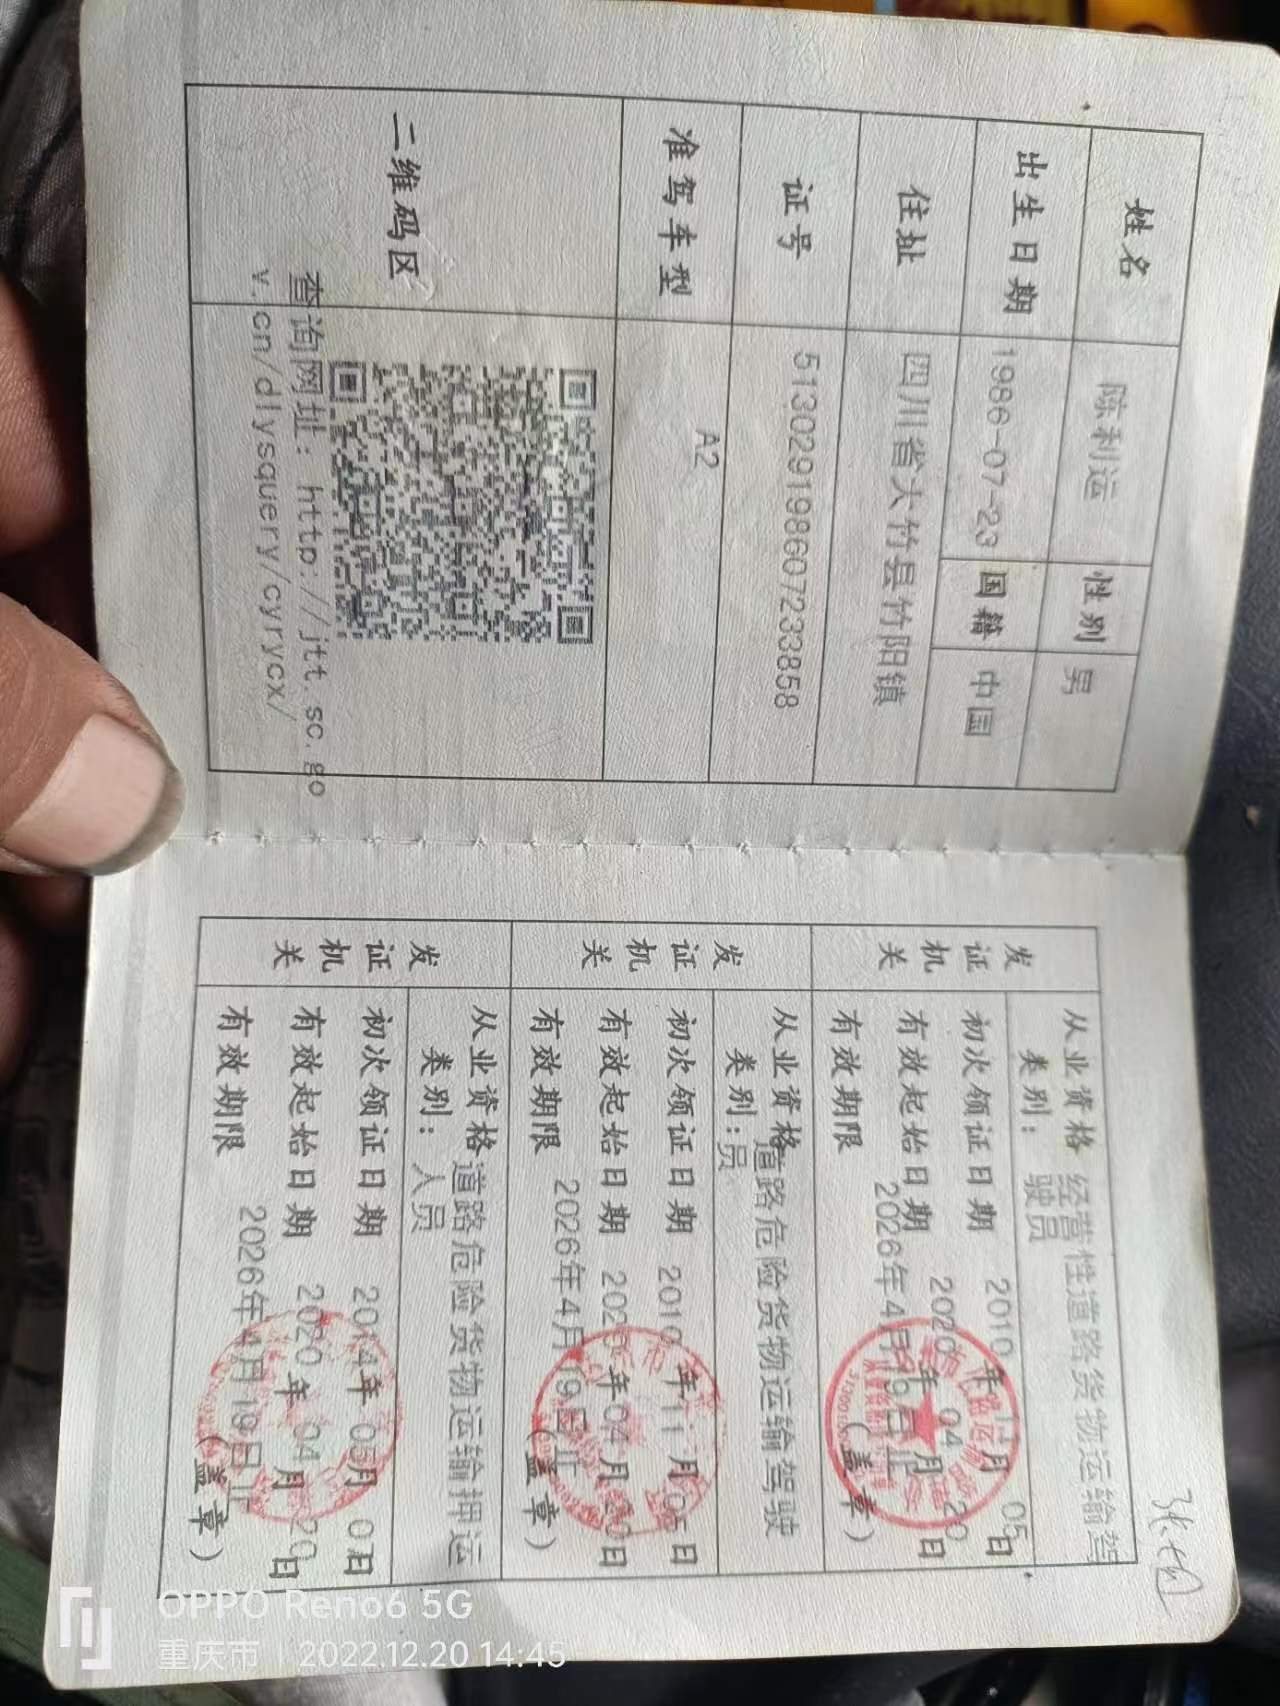 姓名 陈利运 性别 男
出生日期 1986-07-23 国籍 中国
住址 四川省大竹县竹阳镇
证号 513029198607233858
准驾车型 A2
二维码区
查询网址：http://jtt.sc.go
v.cn/dlysquery/cyrycx/
发证机关
从业资格 经营性道路货物运输驾
类别： 驶员
初次领证日期 2010 年 11月 05日
有效起始日期 2020 年 04 月 20日
有效期限 2026年4月19日止
（盖章）
发证机关
从业资格 道路危险货物运输驾驶
类别：员
初次领证日期 2010 年 11 月 05日
有效起始日期 2020 年 04 月 20日
有效期限 2026年4月19日止
（盖章）
发证机关
从业资格 道路危险货物运输押运
类别： 人员
初次领证日期 2014年 05月 07日
有效起始日期 2020 年 04 月 20日
有效期限 2026年4月19日止
（盖章）
OPPO Reno6 5G
重庆市 | 2022.12.20 14:45